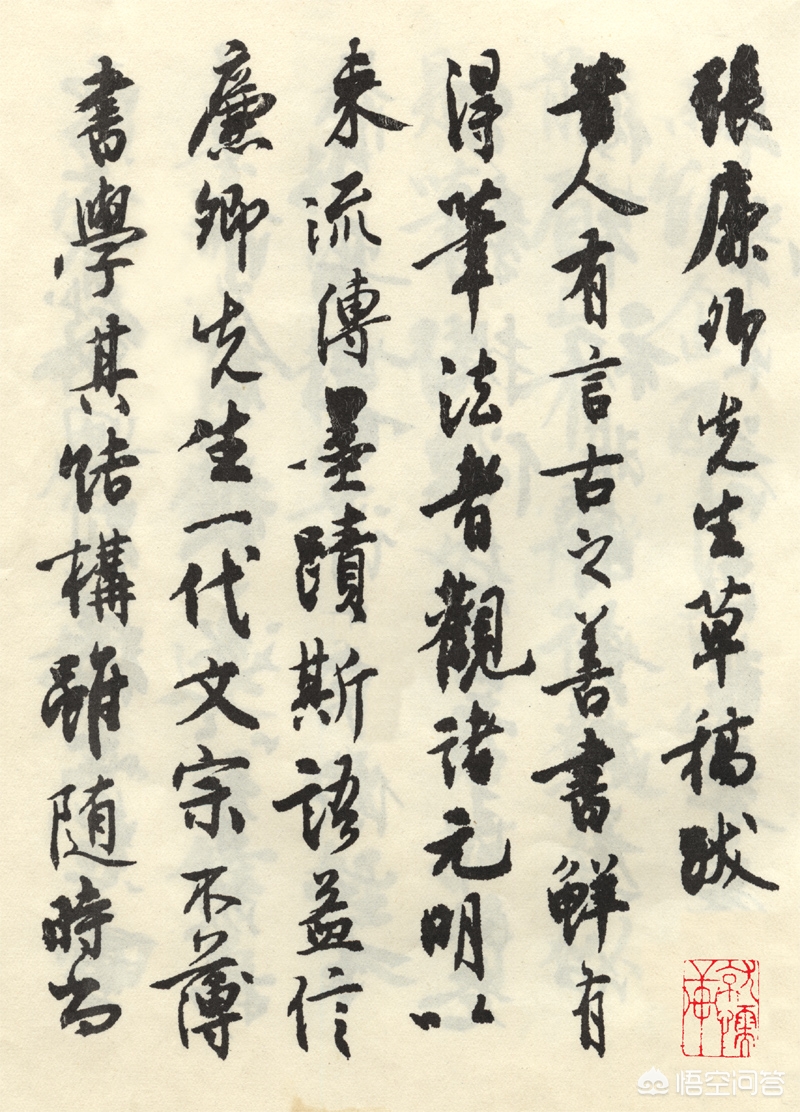 張廉卿先生草稿跋
昔人有言古之善書鮮有
得筆法者觀諸元明以
來流傳墨蹟斯語益信
廉卿先生一代文宗不薄
書學其結構雖随時尚
悟空问答